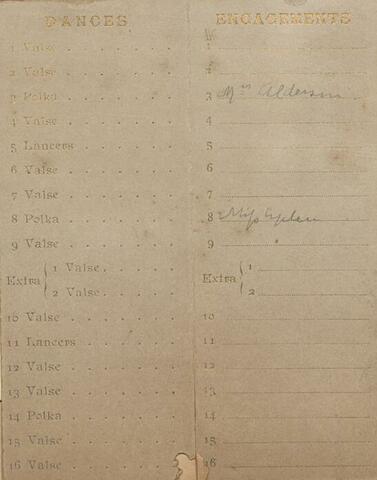 DANCES ENGAGEMENTS
1 Valse . . . . . 1
2 Valse . . . . . 2
3 Polka . . . . . 3 Mrs Alderson
4 Valse . . . . . 4
5 Lancers . . . . . 5
6 Valse . . . . . 6
7 Valse . . . . . 7
8 Polka . . . . . 8 Miss
9 Valse . . . . . 9
Extra { 1 Valse . . . . Extra { 1
2 Valse . . . . 2
10 Valse . . . . . 10
11 Lancers . . . . . 11
12 Valse . . . . . 12
13 Valse . . . . . 13
14 Polka . . . . . 14
15 Valse . . . . . 15
16 Valse . . . . . 16